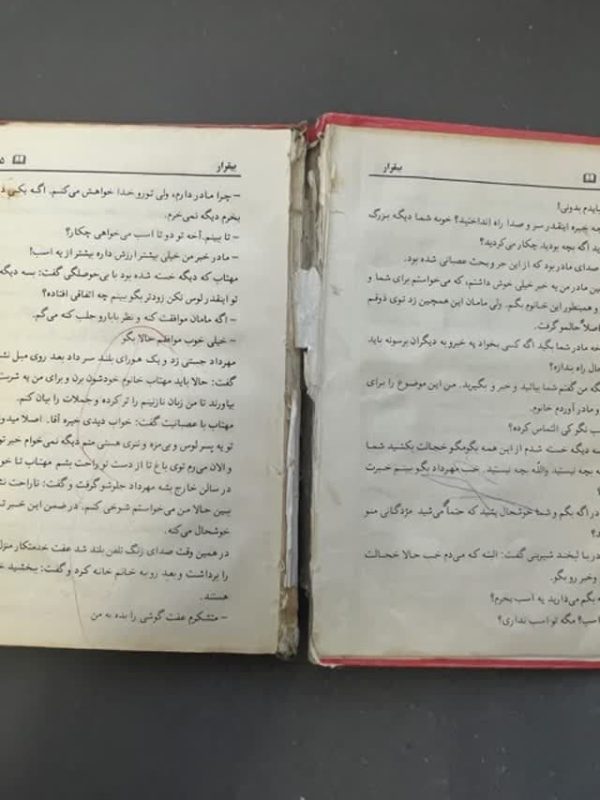 بیقرار
بایدم بدونی!
چه خبره اینقدر سر و صدا راه انداختید؟ خوبه شما دیگه بزرگ
ید اگه بچه بودید چکار می‌کردید؟
صدای مادر بود که از این جر و بحث عصبانی شده بود.
بین مادر من یه خبر خیلی خوش داشتم، که می‌خواستم برای شما و
و همینطور این خانوم بگم. ولی مامان این همچین زد توی ذوقم
اصلاً حالم گرفت.
خه مادر شما بگید اگه کسی بخواد یه خبرو به دیگران برسونه باید
حال راه ندازه؟
گه من گفتم شما بیائید و خبر و بگیرید. من این موضوع را برای
و مادر آوردم خانوم.
ب نگو کی التماس کرده؟
سه دیگه خسته شدم از این همه بگومگو خجالت بکشید شما
یه بچه نیستید والله بچه نیستید. خب مهرداد بگو ببینم خبرت
؟
در اگه بگم و شما خوشحال بشید که حتماً می‌شید مژدگانی منو
در با لبخند شیرینی گفت: البته که می‌دم خب حالا خجالت
و خبر رو بگو.
گه بگم می‌دارید یه اسب بخرم؟
اسب؟ مگه تو اسب نداری؟
بیقرار
۵
– چرا مادر دارم، ولی تورو خدا خواهش می‌کنم. اگه یکی
بخرم دیگه نمی‌خرم.
– تا ببینم. آخه تو دو تا اسب می‌خواهی چکار؟
– مادر خبر من خیلی بیشتر ارزش داره بیشتر از یه اسب!
مهتاب که دیگه خسته شده بود با بی‌حوصلگی گفت: بسه دیگه
تو اینقدر لوس نکن زودتر بگو ببینم چه اتفاقی افتاده؟
– اگه مامان موافقت کنه و نظر بابارو جلب کنه می‌گم.
– خیلی خوب موافقم حالا بگو
مهرداد جستی زد و یک هورای بلند سر داد بعد روی مبل
گفت: حالا باید مهتاب خانوم خودشون برن و برای من یه شربت
بیاورند تا من زبان نازنینم را تر کرده و جملات را بیان کنم.
مهتاب با عصبانیت گفت: خواب دیدی خیره آقا. اصلا میدو
تو یه پسر لوس و بی‌مزه و ننری هستی منم دیگه نمی‌خوام خبر تو
و الان می‌رم توی باغ تا از دست تو راحت بشم مهتاب تا خو
در سالن خارج بشه مهرداد جلوشو گرفت و گفت: ناراحت نشو
ببین حالا من می‌خواستم شوخی کنم. در ضمن این خبر تر
خوشحال می‌کنه.
در همین وقت صدای زنگ تلفن بلند شد عفت خدمتکار منزل
را برداشت و بعد رو به خانم خانه کرد و گفت: ببخشید خ
هستند.
– متشکرم عفت گوشی را بده به من